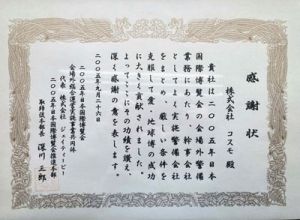 感謝状
株式会社 コスモ 殿
貴社は二〇〇五年日本
国際博覧会の会場外警備
業務にあたり、幹事会社
としてよく実証警備会社
をまとめ、厳しい条件を
克服して愛・地球博の成功
に大きく貢献されました
よってここにその功績を讃え、
深く感謝の意を表します。
二〇〇五年九月二十六日
二〇〇五年日本国際博覧会
会場外総合運営実証事業共同体
代表 株式会社 ジェイティービー
二〇〇五年日本国際博覧会推進本部
取締役本部長 深川三郎